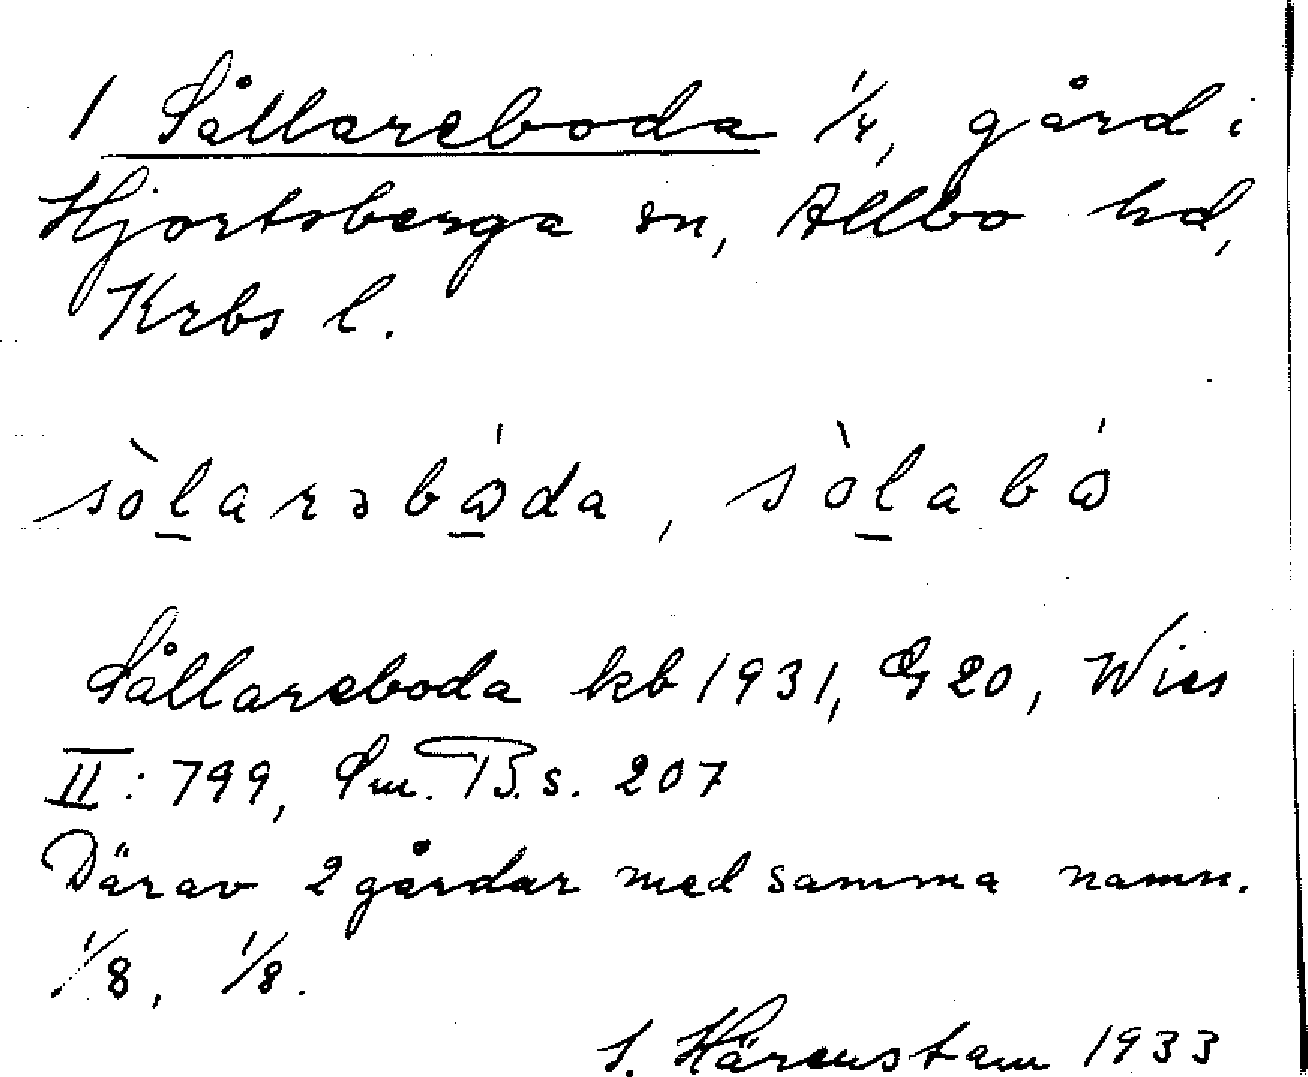 1 Sållareboda 1/4, gård i
Hjortsberga sn, Allbo hd,
Krbs l.
sò̱larəbǻ̱da, sò̱labǻ
Sållareboda kb 1931, G 20, Wies
II: 799, Sm. B. s. 207
Därav 2 gårdar med samma namn.
1/8, 1/8.
S. Härenstam 1933